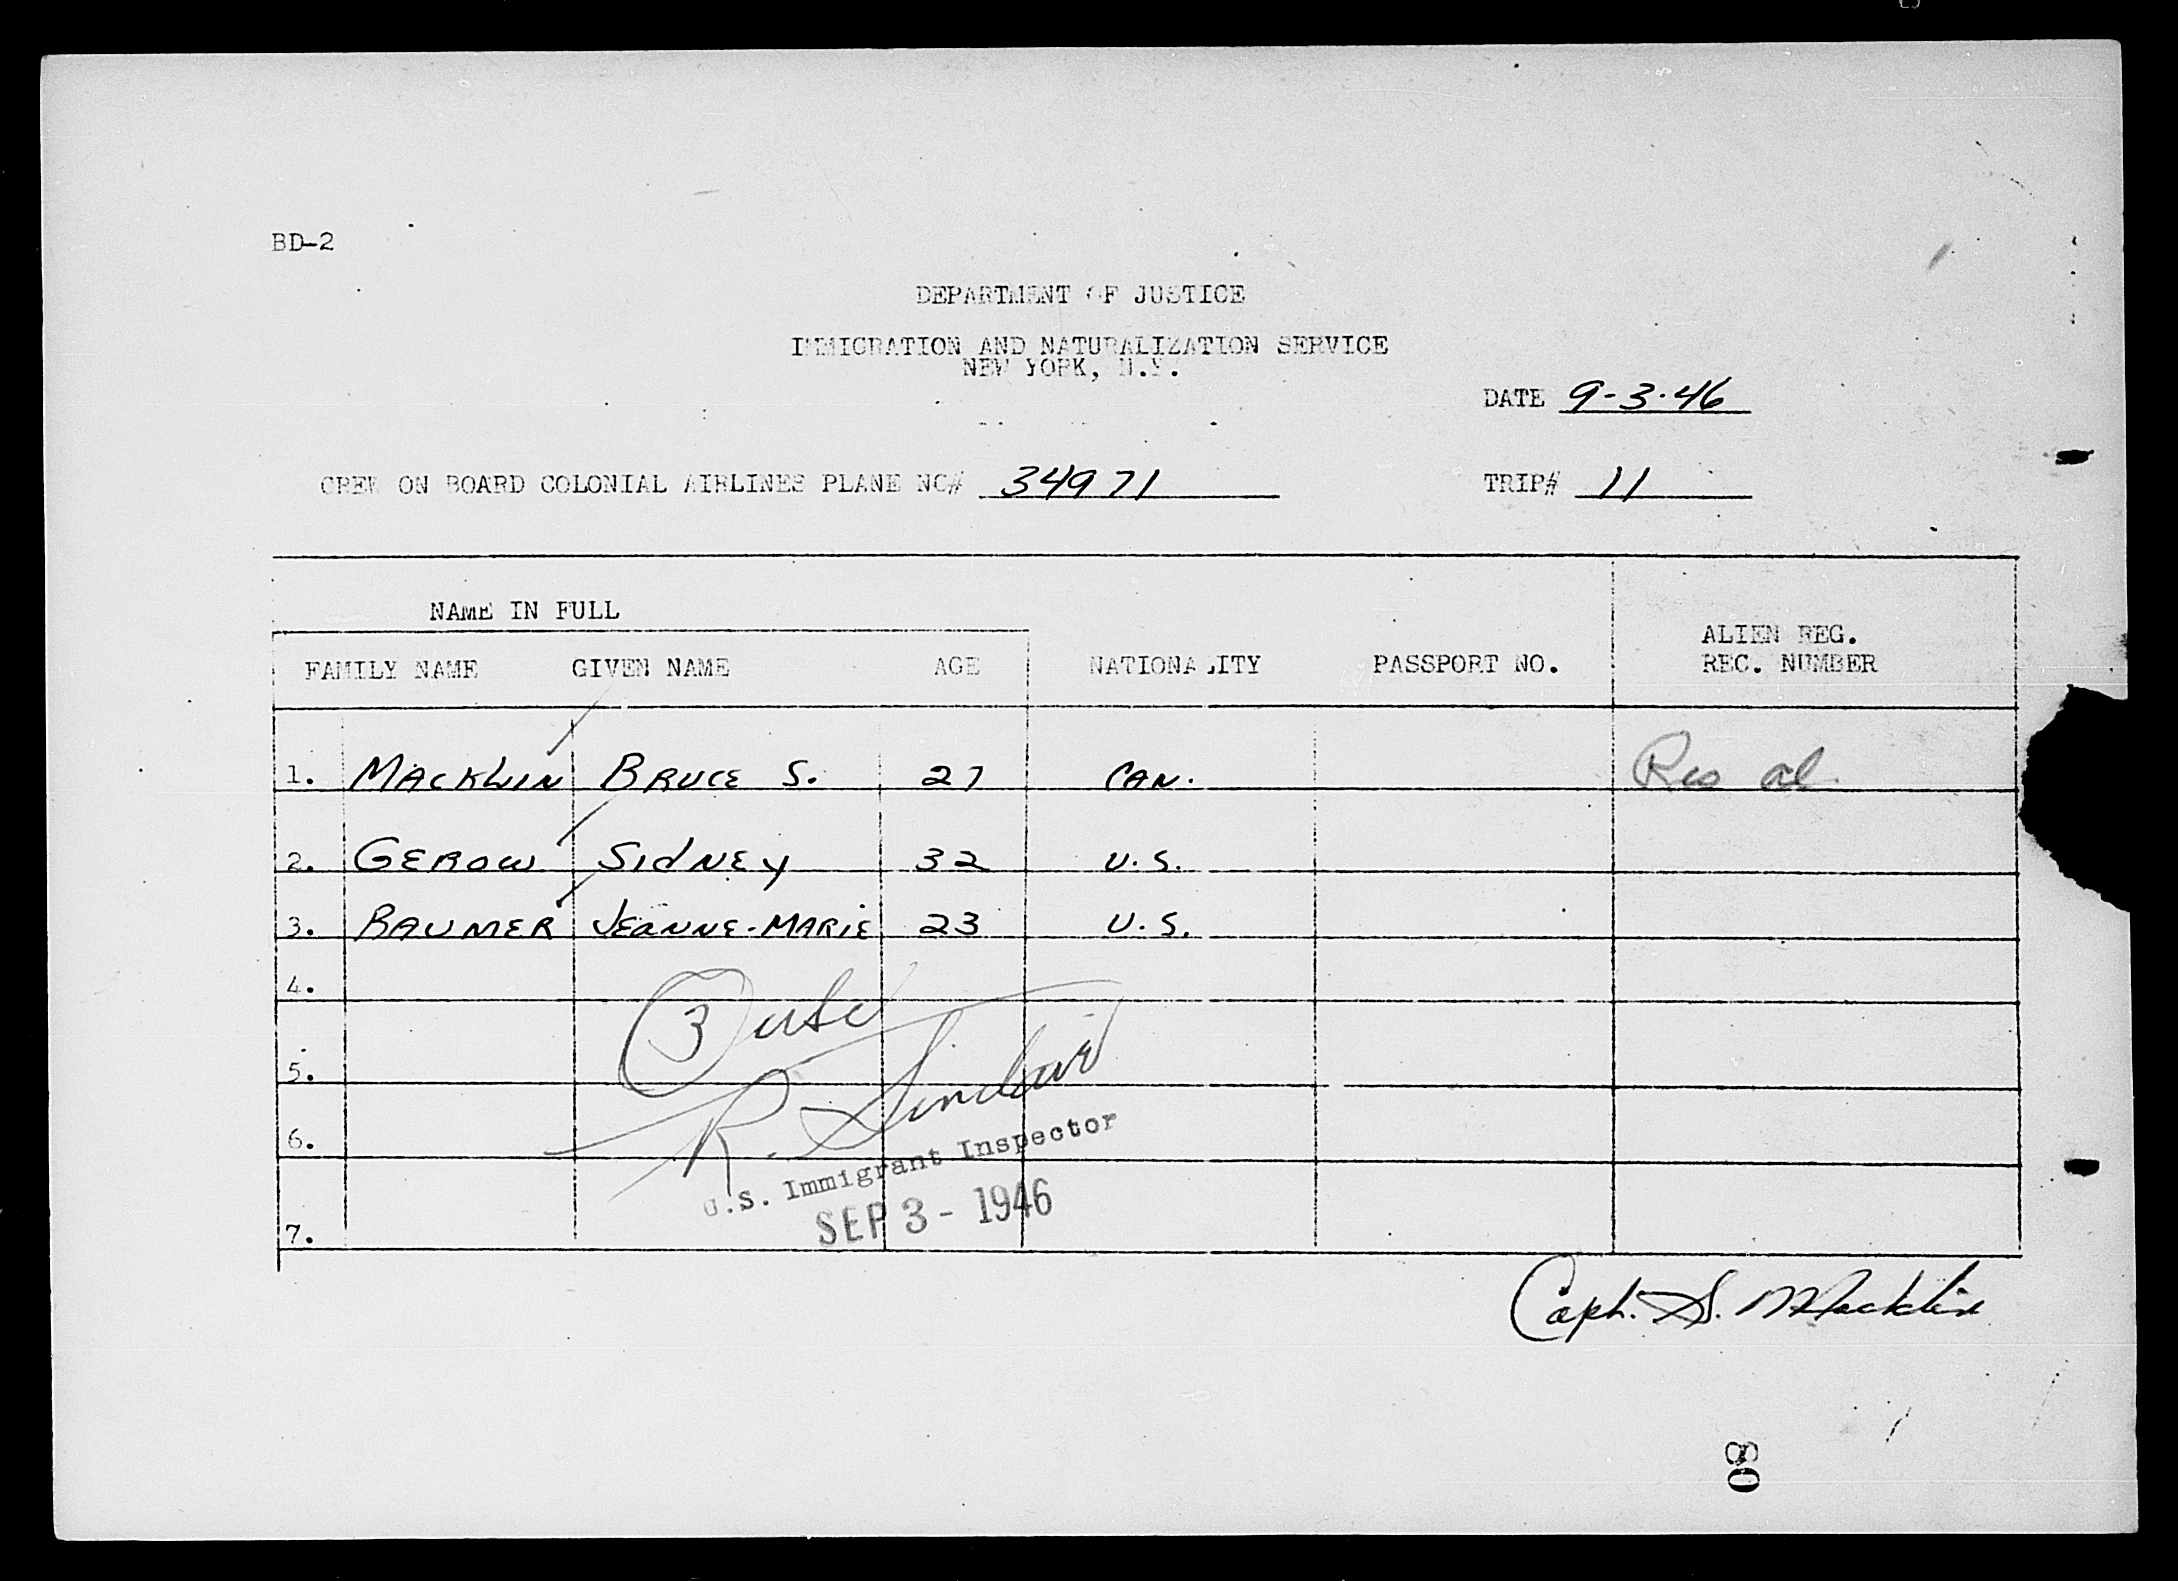 BD-2
DEPARTMENT OF JUSTICE
IMMIGRATION AND NATURALIZATION SERVICE
NEW YORK, N.Y.
DATE 9-3-46
CREW ON BOARD COLONIAL AIRLINES PLANE NO# 34971 TRIP# 11
NAME IN FULL
ALIEN REG.
FAMILY NAME GIVEN NAME AGE NATIONALITY PASSPORT NO. REC. NUMBER
1. MACKLIN BRUCE S. 27 CAN. Res al
2. GEROW SIDNEY 32 U.S.
3. BAUMER JEANNE-MARIE 23 U.S.
4.
3
5.
R. Sinclair
6.
U.S. Immigrant Inspector
SEP 3 - 1946
7.
Capt. S. Macklin
80